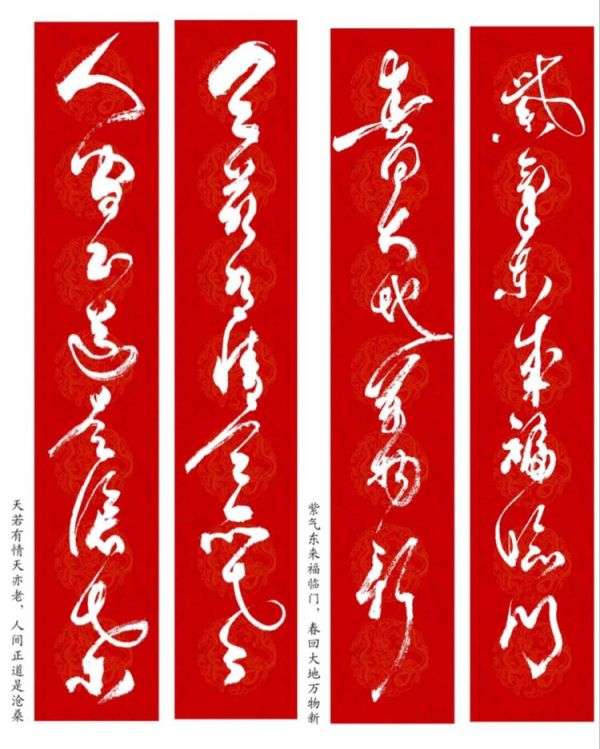 紫气东来福临门
春回大地万物新
紫气东来福临门，春回大地万物新
天若有情天亦老
人间正道是沧桑
天若有情天亦老，人间正道是沧桑